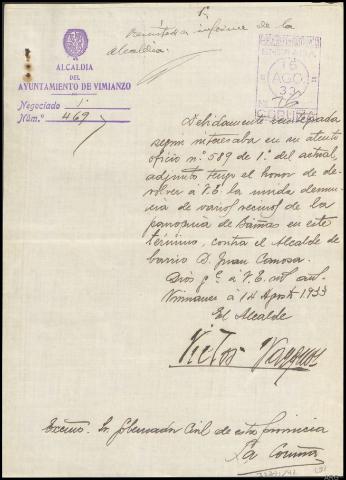 1º
Remítase a informe de la
Alcaldía.
ALCALDIA
DEL
AYUNTAMIENTO DE VIMIANZO
Negociado 1º
Núm.º 469
ENTRADA
16
AGO
33
CORUÑA
Debidamente
según interesaba en su atento
oficio nº 589 de 1º del actual,
adjunto tengo el honor de de-
volver á V.E. la unida denun-
cia de varios vecinos de la
parroquia de Bamas en este
término, contra el Alcalde de
barrio D. Juan Canosa.
Dios gº á V.E. mº añº
Vimianzo á 14 Agosto 1933
El Alcalde
Victor
Excmo. Sr. Gobernador Civil de esta provincia
La Coruña